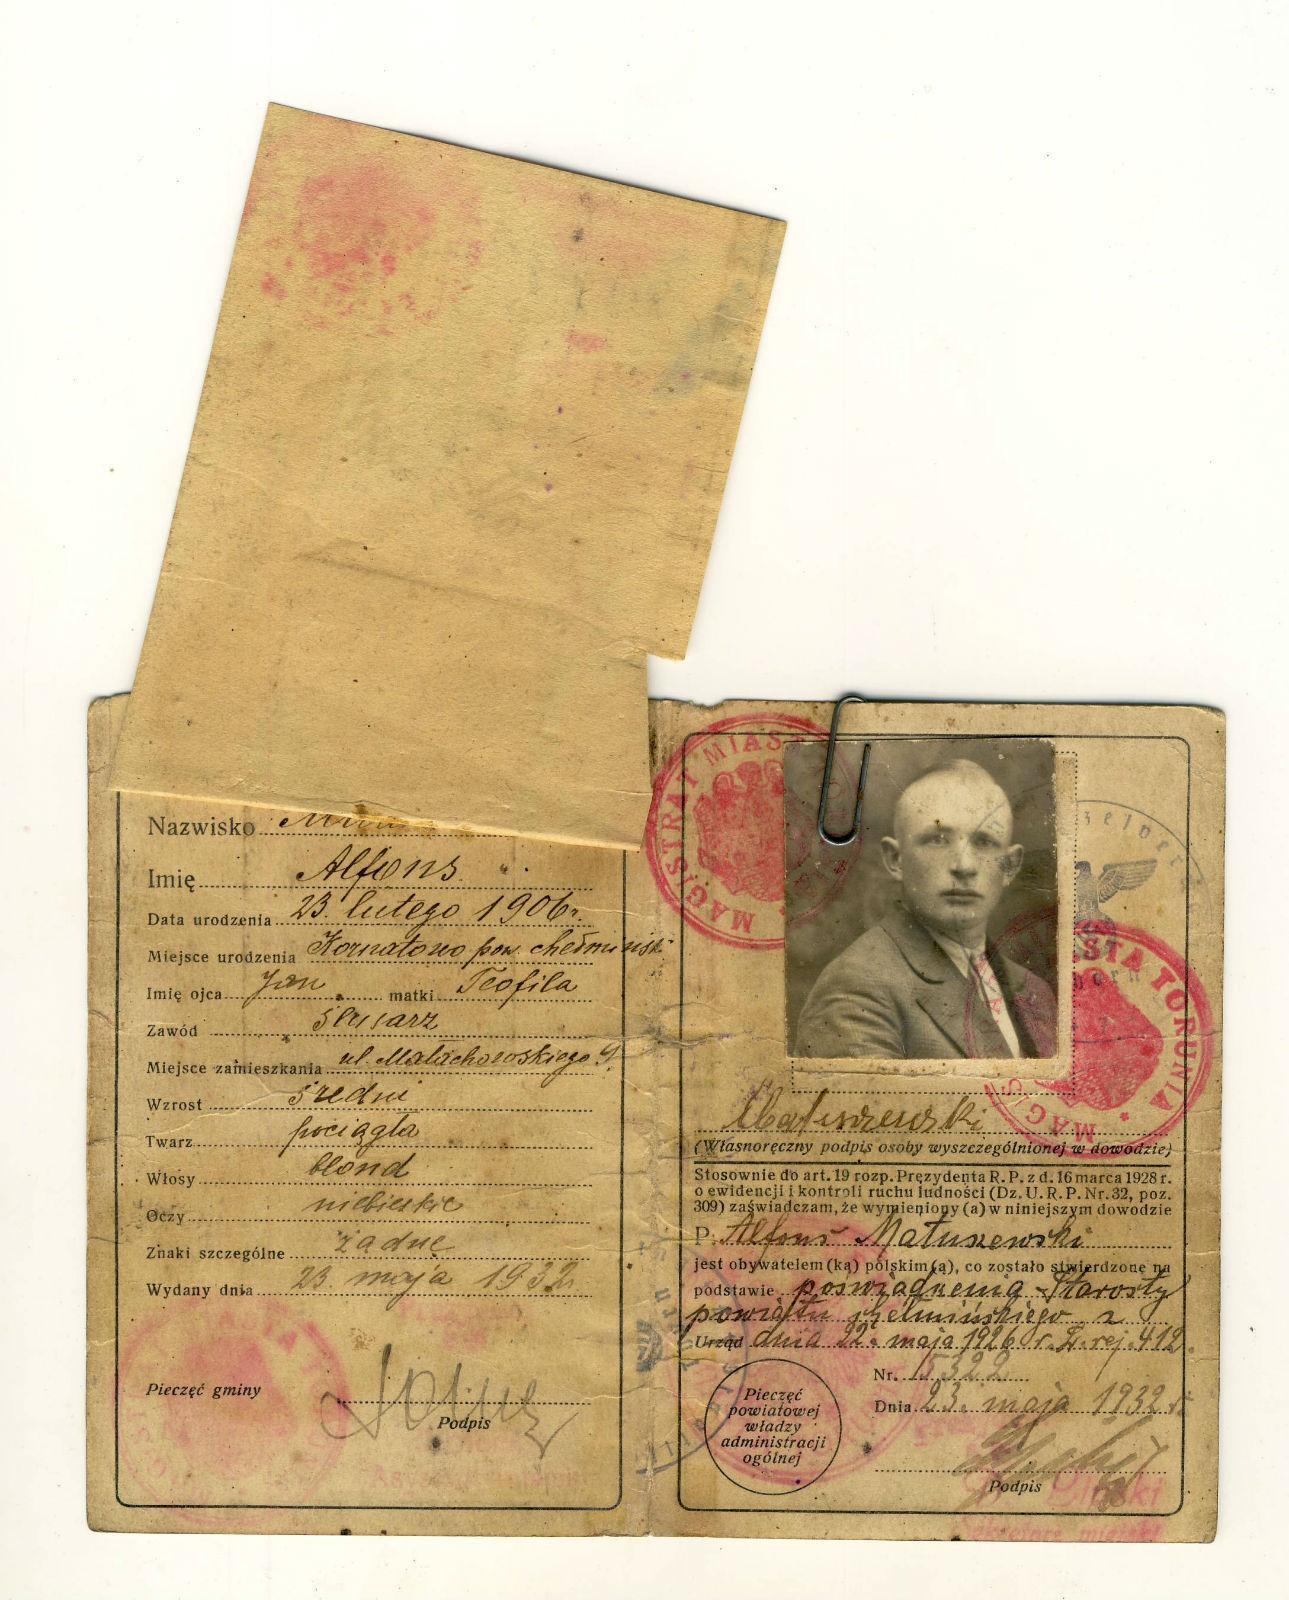 Nazwisko
Imię Alfons
Data urodzenia 23. lutego 1906 r.
Miejsce urodzenia Kornatowo pow. chełmiński
Imię ojca Jan matki Teofila
Zawód ślusarz
Miejsce zamieszkania ul. Małachowskiego 9.
Wzrost średni
Twarz pociągła
Włosy blond
Oczy niebieskie
Znaki szczególne żadne
Wydany dnia 23. maja 1932 r.
Pieczęć gminy
Podpis
MAGISTRAT MIAS
MAGIS STA TORUNIA
Matuszewski
(Własnoręczny podpis osoby wyszczególnionej w dowodzie)
Stosownie do art. 19 rozp. Prezydenta R. P. z d. 16 marca 1928 r.
o ewidencji i kontroli ruchu ludności (Dz. U. R. P. Nr. 32, poz.
309) zaświadczam, że wymieniony (a) w niniejszym dowodzie
P. Alfons Matuszewski
jest obywatelem (ką) polskim (ą), co zostało stwierdzone na
podstawie poświadczenia Starosty
powiatu chełmińskiego z
Urząd dnia 22. maja 1926 r. L. rej. 412.
Nr. 15322
Dnia 23. maja 1932 r.
Pieczęć
powiatowej
władzy
administracji
ogólnej
Podpis
Sekretarz miejski